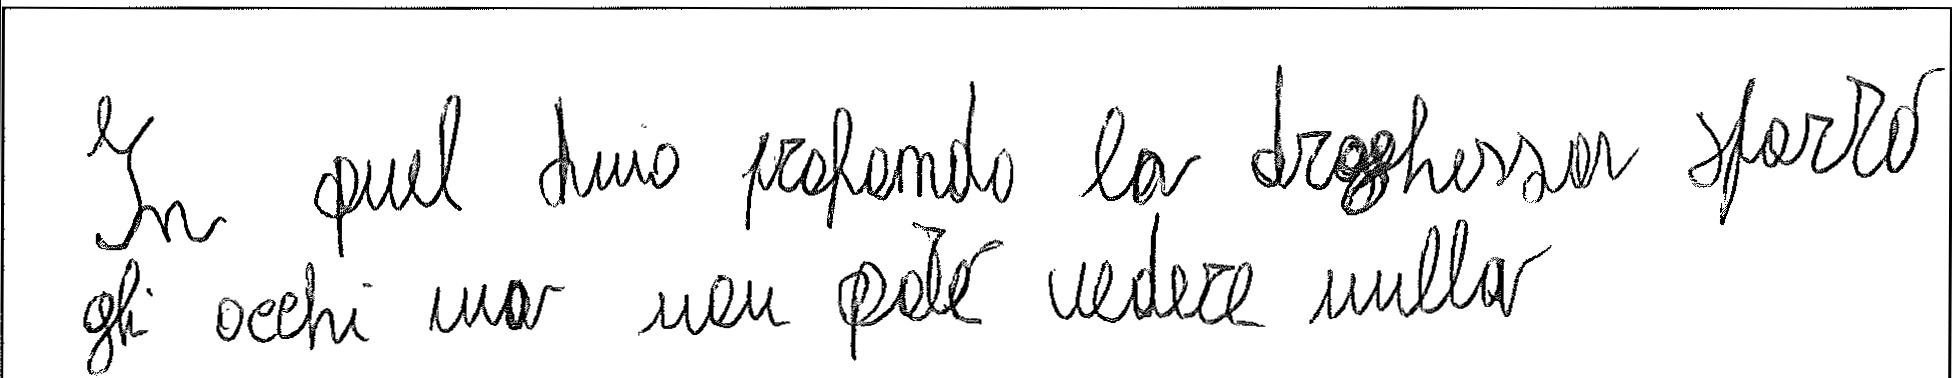 In quel buio profondo la draghessa sparrò
gli occhi ma non poté vedere nulla